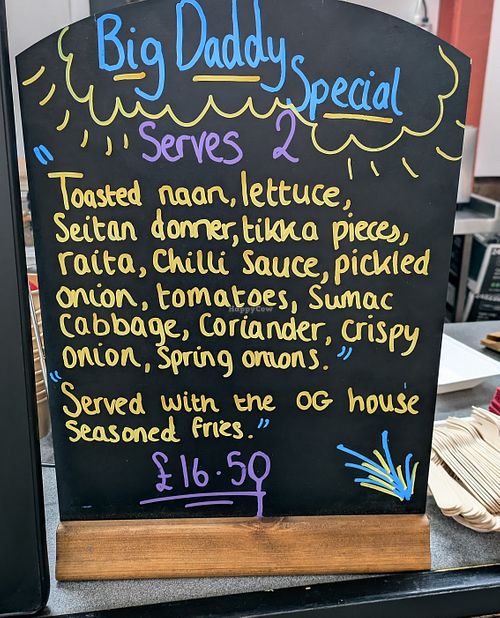 Big Daddy
Special
Serves 2
"Toasted naan, lettuce,
Seitan donner, tikka pieces,
raita, Chilli Sauce, pickled
onion, tomatoes, Sumac
Cabbage, Coriander, crispy
onion, Spring onions."
"Served with the OG house
Seasoned fries."
£16.50
HappyCow